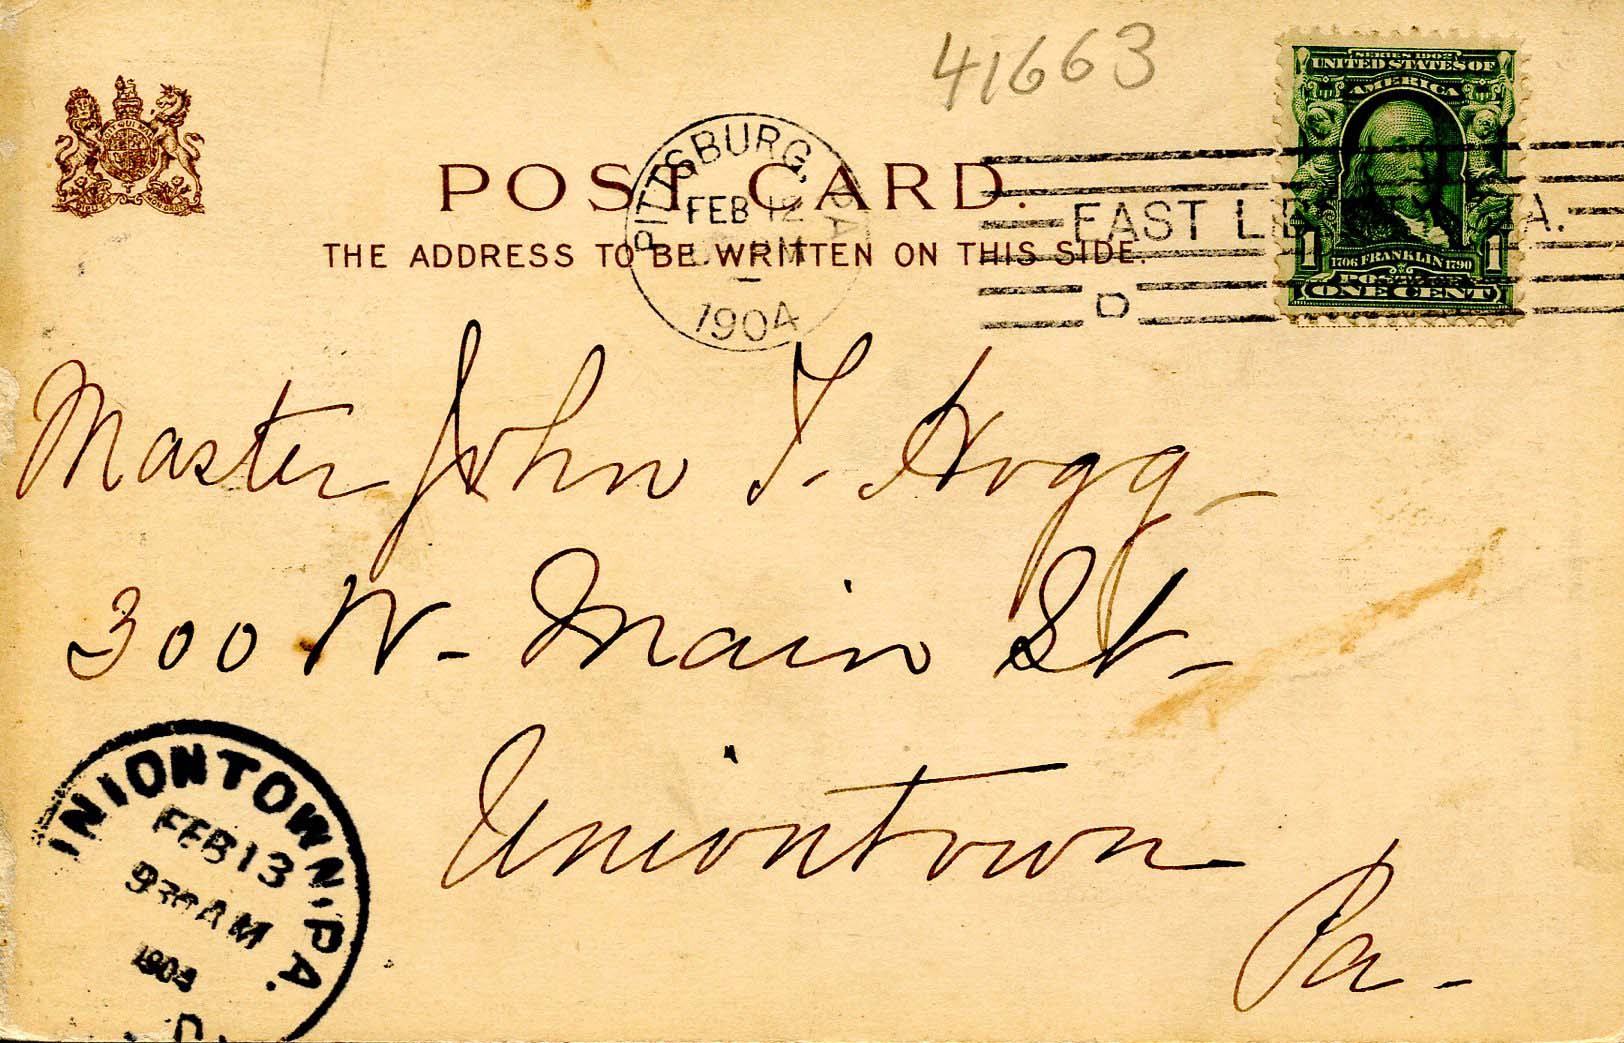 41663
SERIES 1902
UNITED STATES OF
AMERICA
1706 FRANKLIN 1790
POSTAGE
1 1
ONE CENT
PITTSBURG, PA
FEB 12
1904
EAST LIBERTY STA.
D
POST CARD.
THE ADDRESS TO BE WRITTEN ON THIS SIDE.
Master John T. Hogg
300 W. Main St.
Uniontown
Pa.
UNIONTOWN, PA.
FEB 13
930AM
1904